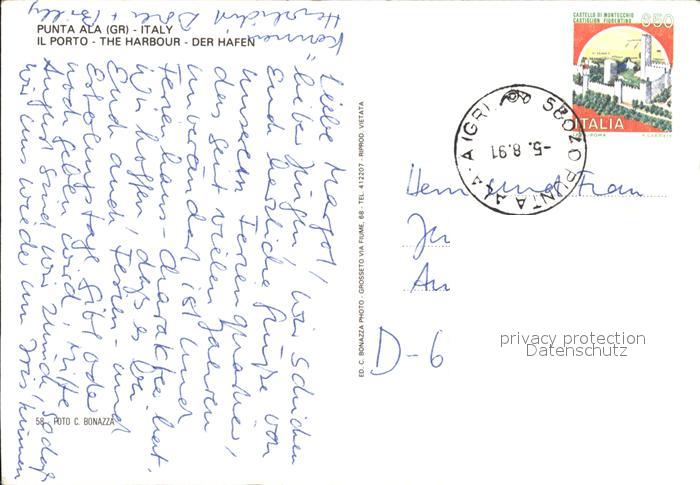 PUNTA ALA (GR) - ITALY
IL PORTO - THE HARBOUR - DER HAFEN
Liebe Margot,
lieber Jürgen, wir schicken
Euch herzliche Grüße von
unserem Ferienquartier,
das seit vielen Jahren
unverändert ist und
Ferienhaus-Charakter hat.
Wir hoffen, dass es bei
Euch auch Ferien- und
Erholungstage gibt oder
noch geben wird. Mitte
August sind wir zurück, sodaß
wir uns wieder im
können
Herzlichst +
58 FOTO C. BONAZZA
ED. C. BONAZZA PHOTO - GROSSETO VIA FIUME, 68 - TEL. 412207 - RIPROD. VIETATA
CASTELLO DI MONTECCHIO
CASTIGLION FIORENTINO
650
ITALIA
58020 PUNTA ALA (GR)
-5.8.91
Herrn und Frau
Ju
An
D-6
privacy protection
Datenschutz